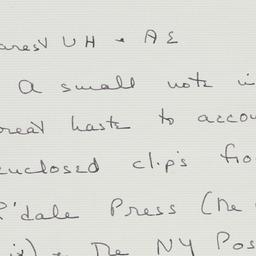 UH & AE
A small note in
great haste to accou
enclosed clip's fro
R'dale Press (the
The NY Pos